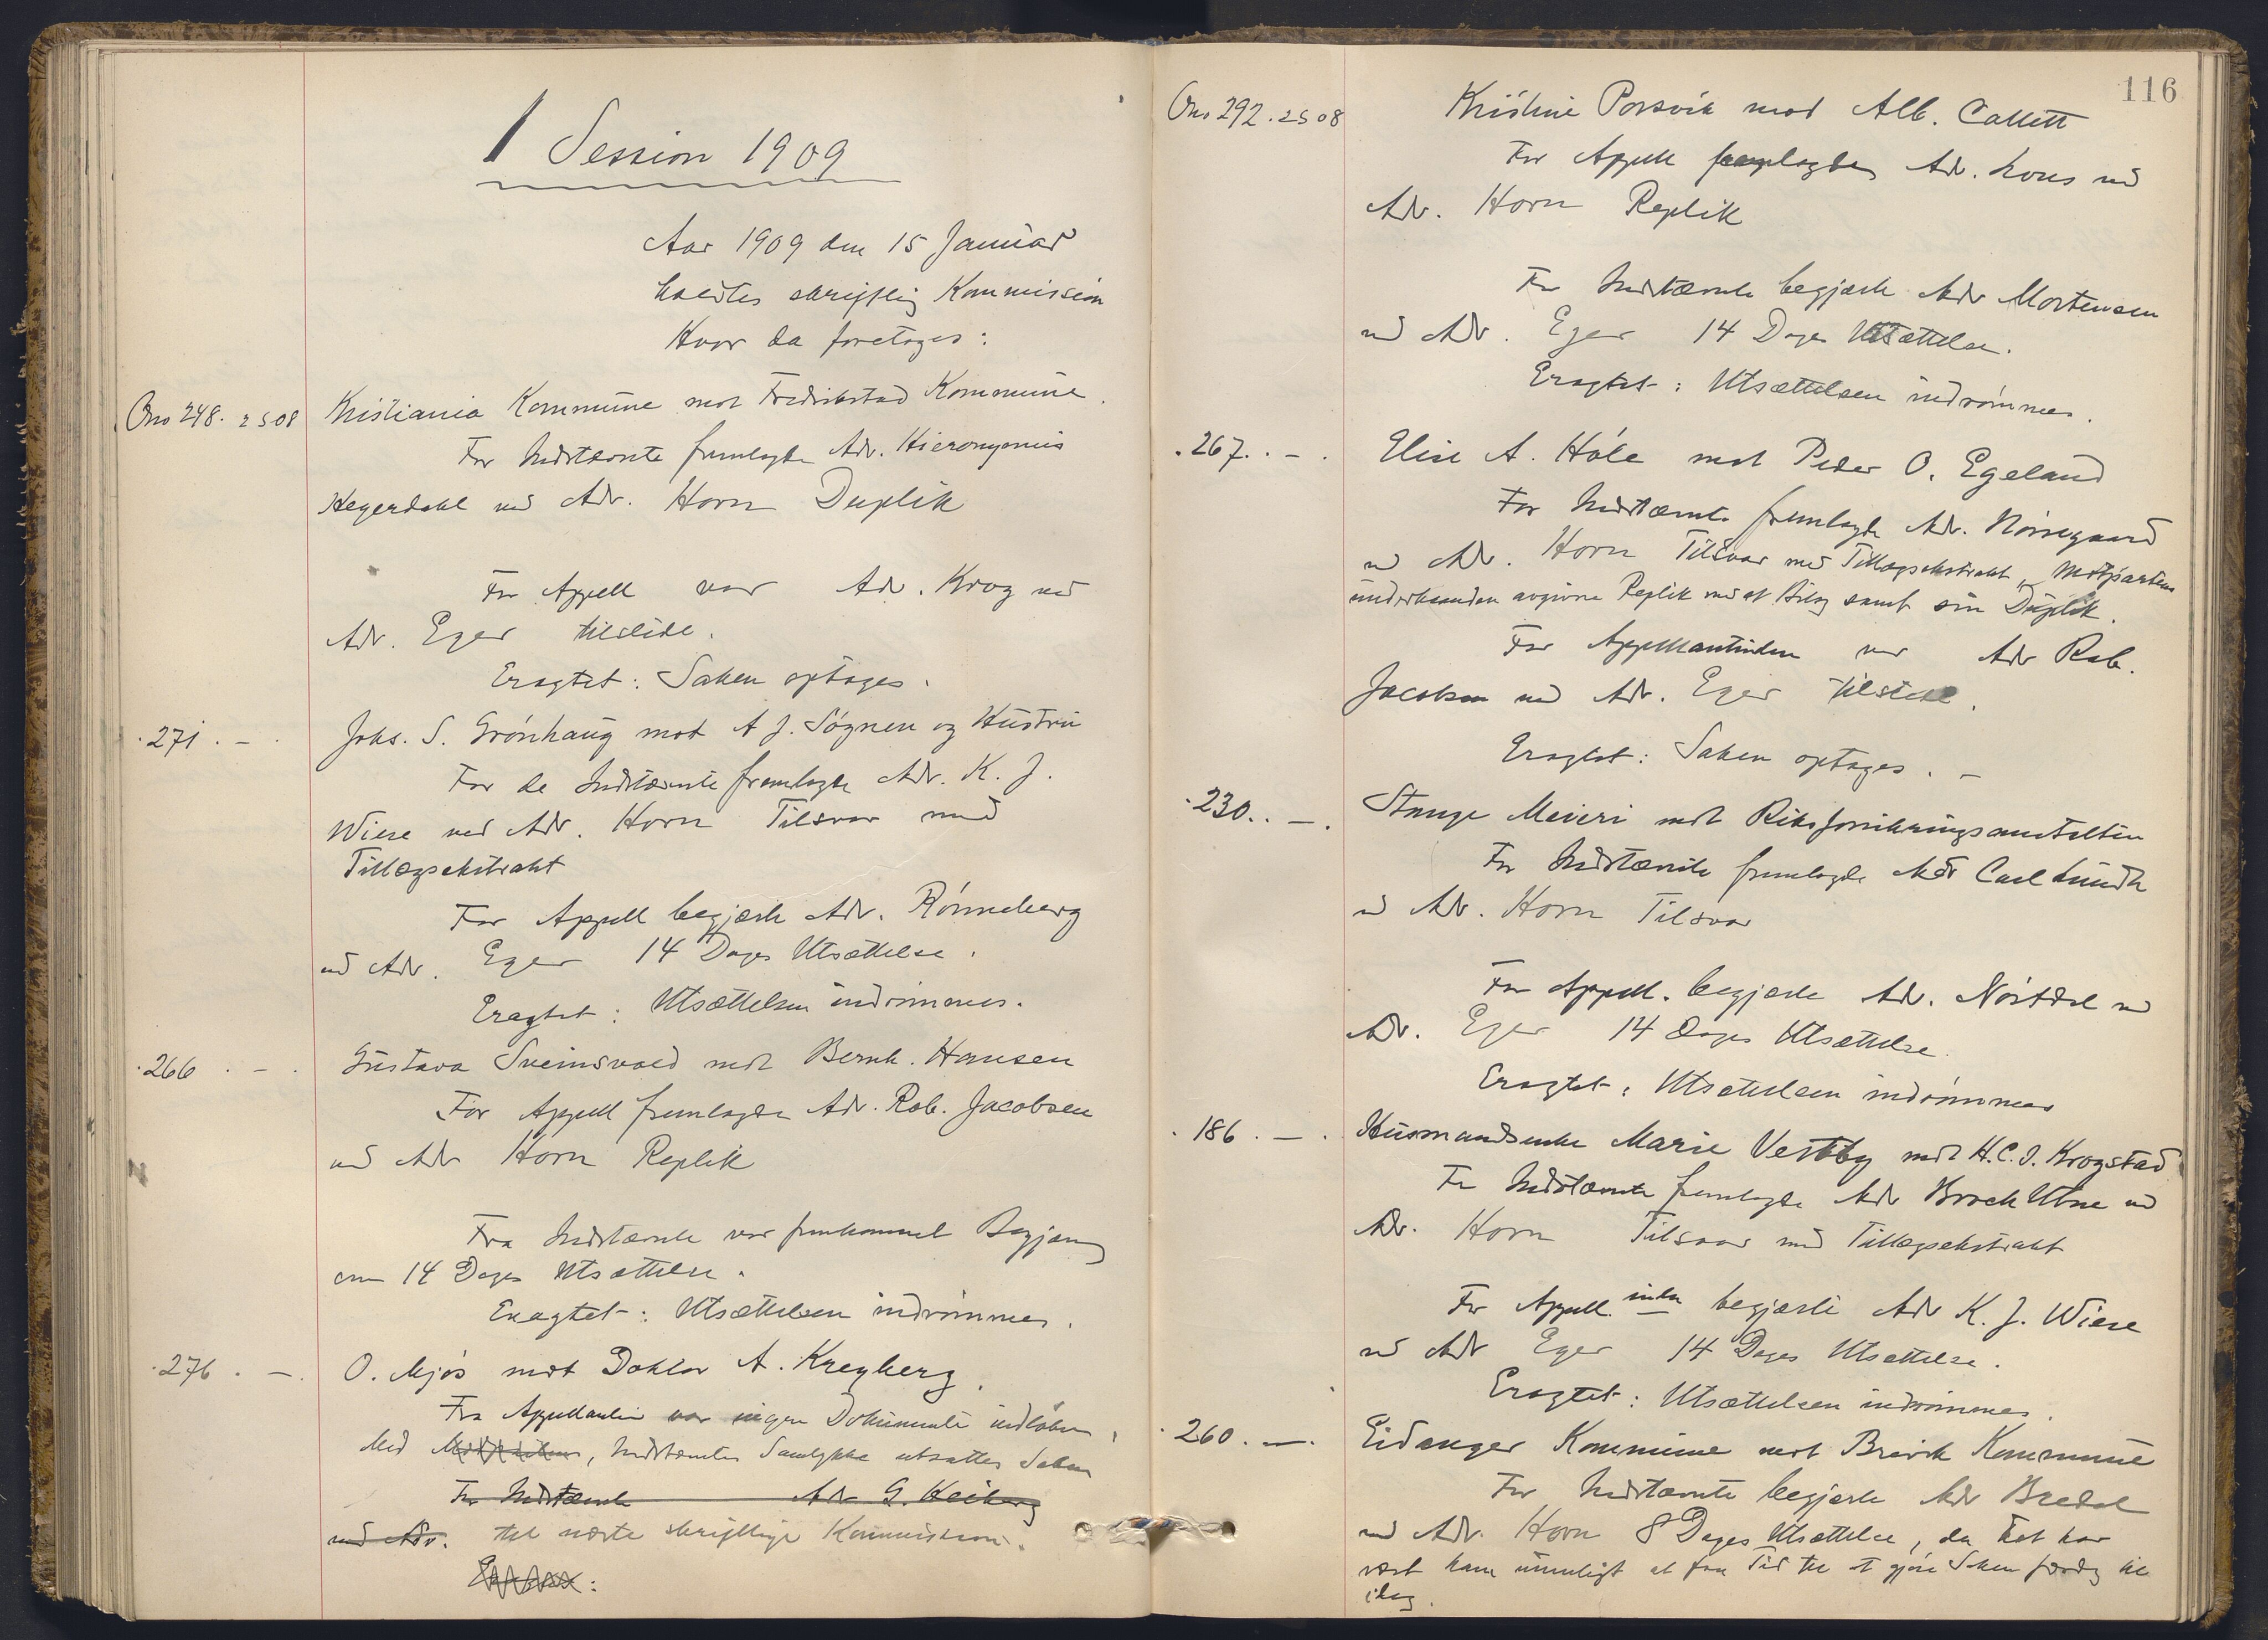 1 Session 1909
Aar 1909 den 15 Januar
holdtes skriftlig Kommission
Hvor da foretoges:
Ono 248. 2 S 08 Kristiania Kommune mot Fredrikstad Kommune.
For Indstævnte fremlagde Adv. Hieronymus
Hegerdahl ved Adv. Horn Duplik
For Appell var Adv. Krog ved
Adv. Eger tilstede.
Eragtet: Saken optages.
271. - Johs. S. Grönhaug mot A J. Sögnen og Hustru
For de Indstævnte fremlagde Adv. K. J.
Wiese ved Adv. Horn Tilsvar med
Tillægsekstrakt
For Appell begjærte Adv. Rönneberg
ved Adv. Eger 14 Dages Utsættelse.
Eragtet: Utsættelsen indrömmes.
266. - Gustava Sveinsvold mot Bernh. Hansen
For Appell fremlagde Adv. Rob. Jacobsen
ved Adv Horn Replik
Fra Indstævnte var fremkommet Begjæring
om 14 Dages Utsættelse.
Eragtet: Utsættelsen indrömmes.
276. - O. Mjös mot Doktor A. Kreyberg.
Fra Appellanten var ingen Dokumenter indlöbne,
Med Indstævntes Samtykke utsattes Saken
For Indstævnte Adv G. Heiberg
ved Adv. til næste skriftlige Kommission.
116
Ono 292. 2 S 08 Kristine Porsvik mod Alb. Collett
For Appell fremlagdes Adv. Lous ved
Adv. Horn Replik
For Indstævnte begjærte Adv Mortensen
ved Adv. Eger 14 Dages Utsættelse.
Eragtet: Utsættelsen indrömmes.
267. - Elise A. Hóle mot Peder O. Egeland
For Indstævnte fremlagde Adv. Nörregaard
ved Adv. Horn Tilsvar med Tillægsekstrakt, Motpartens
underhaanden avgivne Replik med et Bilag samt sin Duplik.
For Appellantinden var Adv Rob.
Jacobsen ved Adv. Eger tilstede.
Eragtet: Saken optages. -
230. - Stange Meieri mot Riksforsikringsanstalten
For Indstævnte fremlagde Adv Carl Lundh
ved Adv. Horn Tilsvar
For Appell. begjærte Adv. Nördal ved
Adv. Eger 14 Dages Utsættelse.
Eragtet: Utsættelsen indrömmes
186. - Husmandsenke Marie Vestby mot H. C. J. Krogstad
For Indstævnte fremlagde Adv Broch Utne ved
Adv. Horn Tilsvar med Tillægsekstrakt
For Appell. inden begjærte Adv K. J. Wiese
ved Adv Eger 14 Dages Utsættelse.
Eragtet: Utsættelsen indrömmes.
260. - Eidanger Kommune mot Brevik Kommune
For Indstævnte begjærte Adv Bredal
ved Adv. Horn 8 Dages Utsættelse, da det har
været ham umuligt at faa Tid til at gjöre Saken færdig til
idag.